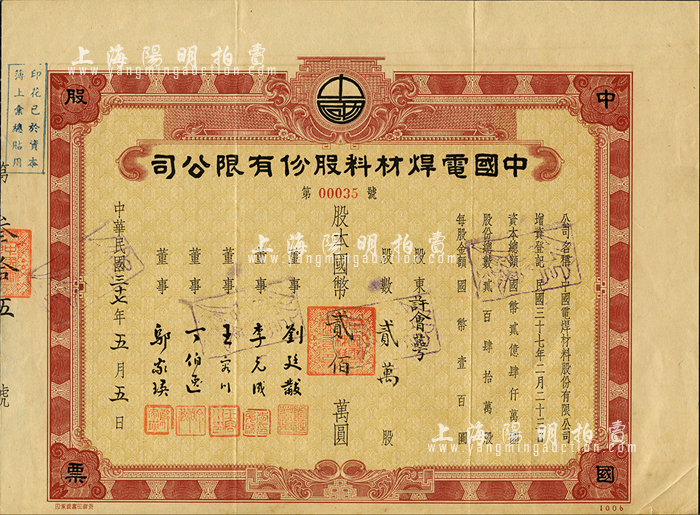 上海陽明拍賣
www.yangmingauction.com
印花已於資本
簿上彙總貼用
中
股
國
票
中國電焊材料股份有限公司
第 00035 號
公司名稱 中國電焊材料股份有限公司
增資登記 民國三十七年二月二十三日
資本總額 國幣貳億肆仟萬圓
股份總數 貳百肆拾萬股
每股金額 國幣壹百圓
股東 許會
股數 貳萬 股
股本國幣貳佰萬圓
董事 劉廷
董事 李元成
董事 王
董事 丁伯
董事 鄔
中華民國三十七年五月五日
萬
叁拾五
號
上海陽明拍賣
www.yangmingauction.com
上海陽明拍賣
www.yangmingauction.com
1006